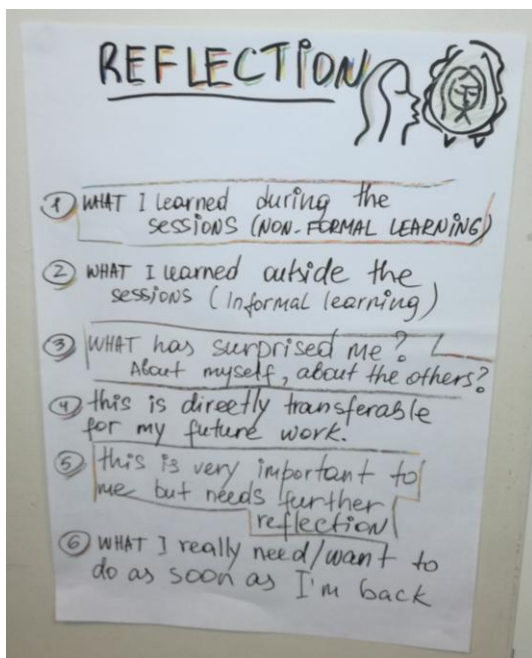 REFLECTION
1 WHAT I learned during the
sessions (NON-FORMAL LEARNING)
2 WHAT I learned outside the
sessions (Informal learning)
3 WHAT has surprised me?
About myself, about the others?
4 this is directly transferable
for my future work.
5 this is very important to
me but needs further
reflection
6 WHAT I really need/want to
do as soon as I'm back